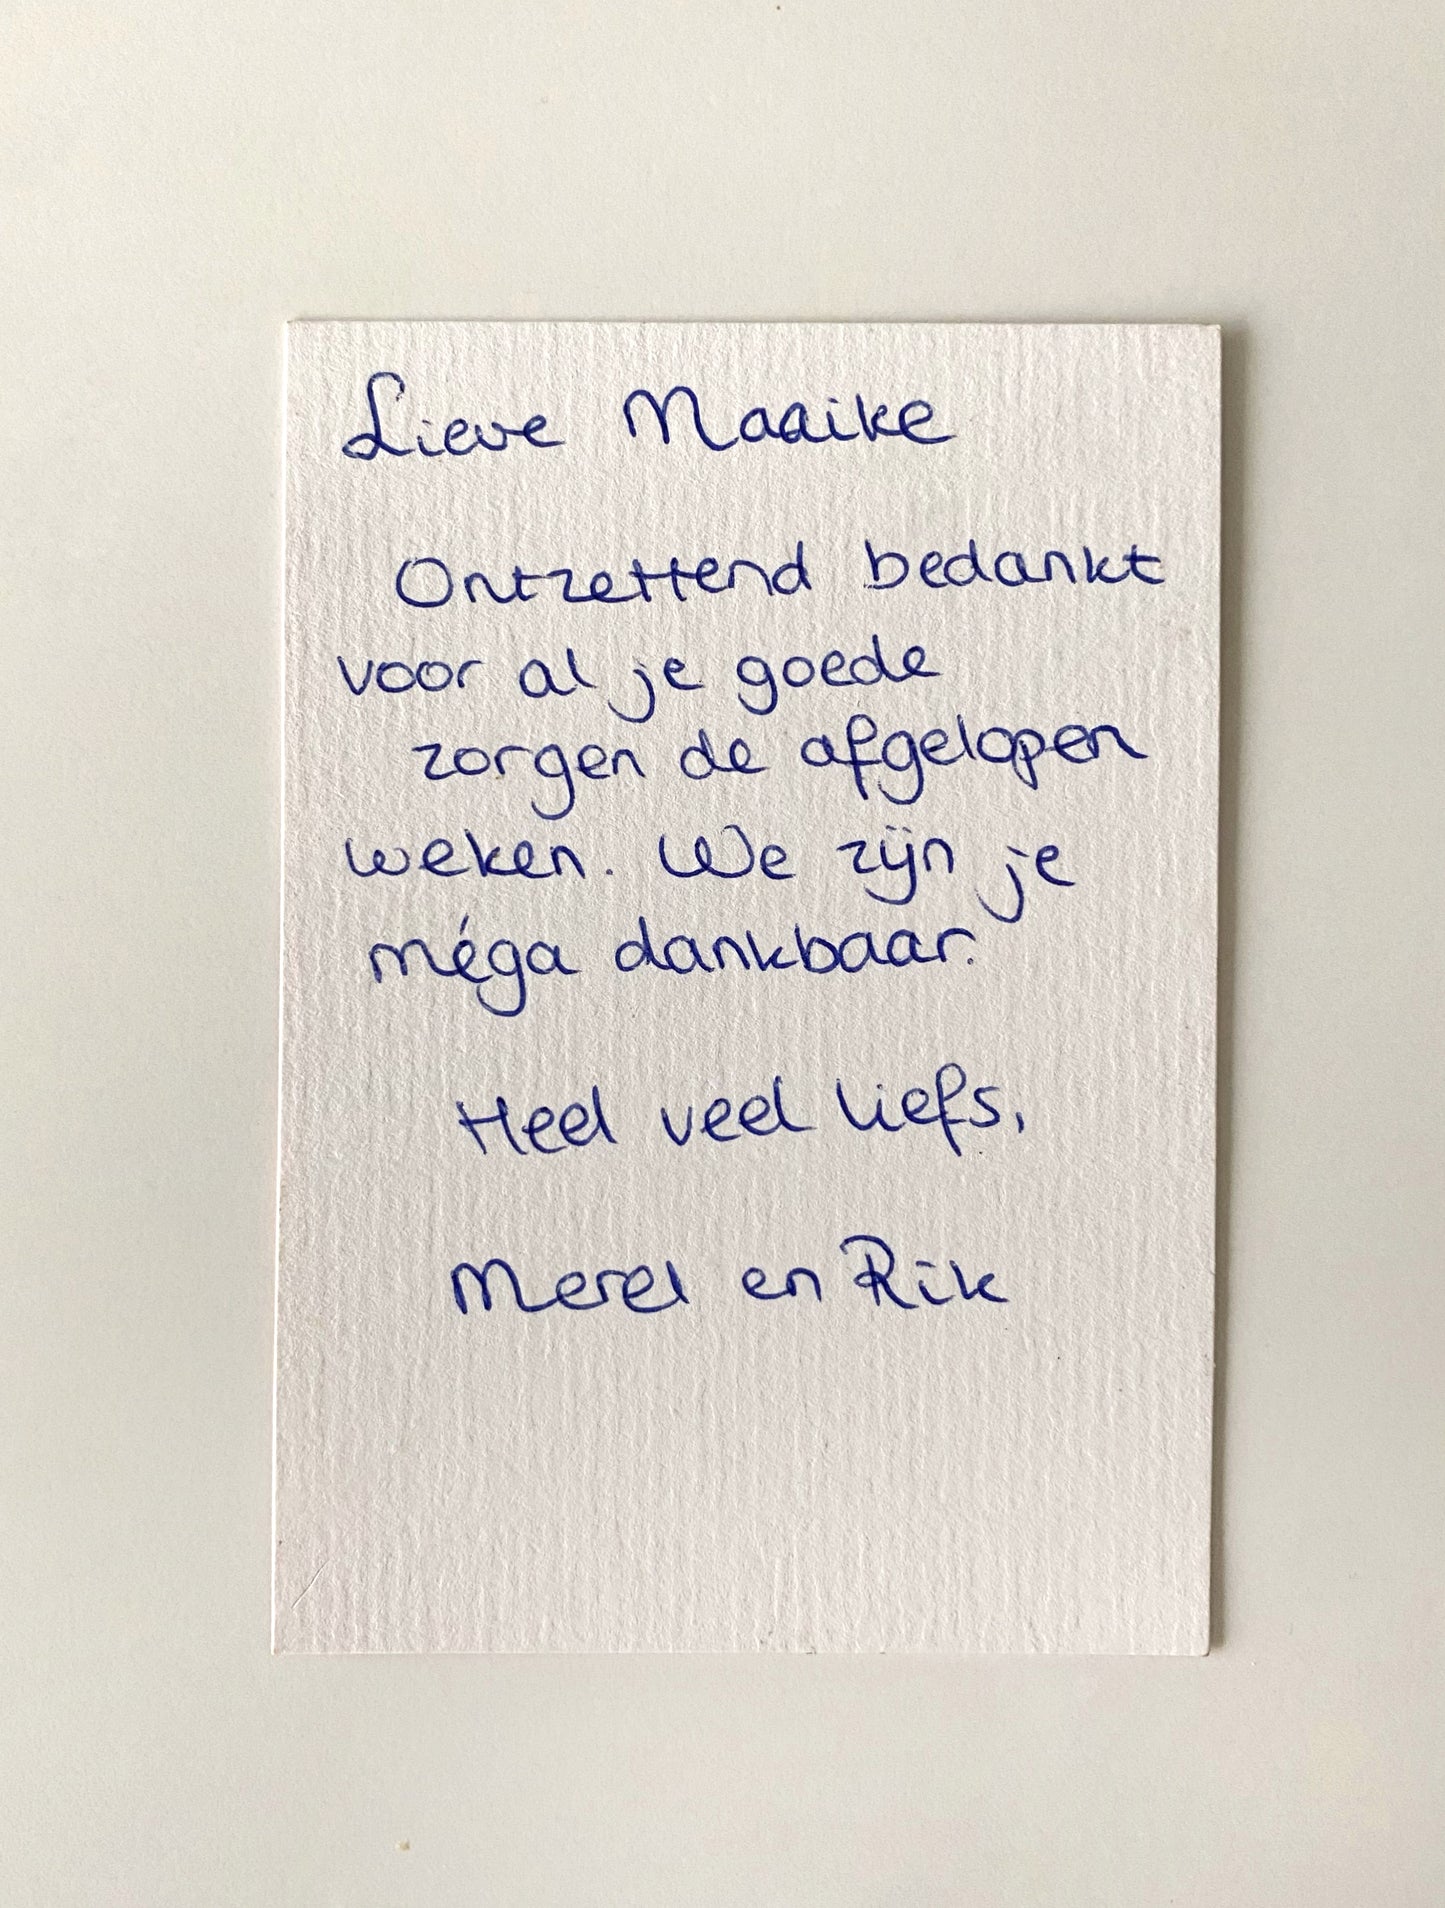 Lieve Maaike
Ontzettend bedankt
voor al je goede
zorgen de afgelopen
weken. We zijn je
méga dankbaar.
Heel veel liefs,
Merel en Rik